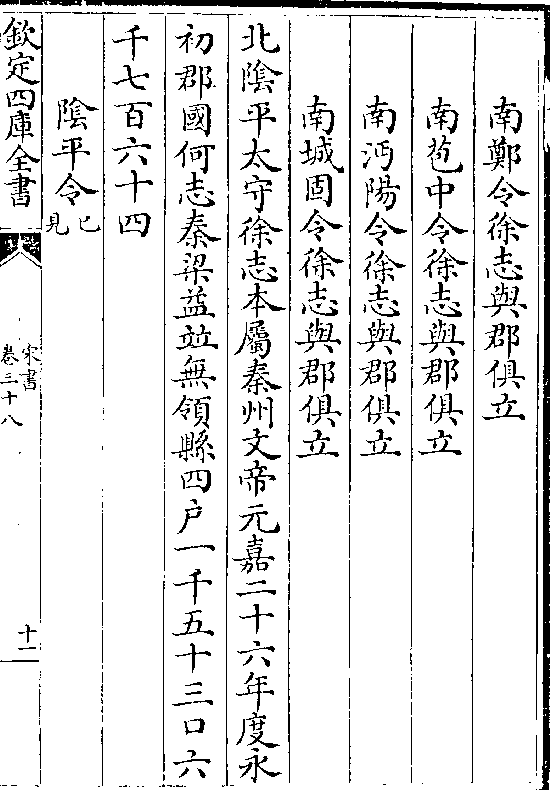 南鄭令徐志與郡俱立
南苞中令徐志與郡俱立
南沔陽令徐志與郡俱立
南城固令徐志與郡俱立
北陰平太守徐志本屬秦州文帝元嘉二十六年度永
初郡國何志秦梁益竝無領縣四户一千五十三口六
千七百六十四
陰平令已見
欽定四庫全書
宋書
卷三十八
十一